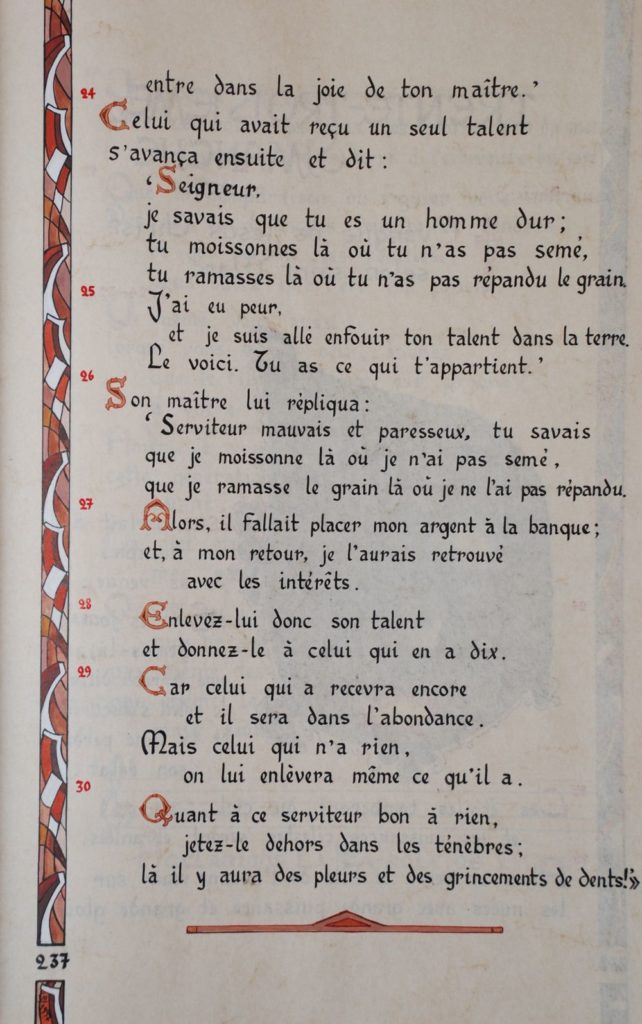 entre dans la joie de ton maître.’
24
Celui qui avait reçu un seul talent
s’avança ensuite et dit :
‘Seigneur,
je savais que tu es un homme dur ;
tu moissonnes là où tu n’as pas semé,
tu ramasses là où tu n’as pas répandu le grain.
25
J’ai eu peur,
et je suis allé enfouir ton talent dans la terre.
Le voici. Tu as ce qui t’appartient.’
26
Son maître lui répliqua :
‘Serviteur mauvais et paresseux, tu savais
que je moissonne là où je n’ai pas semé,
que je ramasse le grain là où je ne l’ai pas répandu.
27
Alors, il fallait placer mon argent à la banque ;
et, à mon retour, je l’aurais retrouvé
avec les intérêts.
28
Enlevez-lui donc son talent
et donnez-le à celui qui en a dix.
29
Car celui qui a recevra encore
et il sera dans l’abondance.
Mais celui qui n’a rien,
on lui enlèvera même ce qu’il a.
30
Quant à ce serviteur bon à rien,
jetez-le dehors dans les ténèbres ;
là il y aura des pleurs et des grincements de dents!’»
237